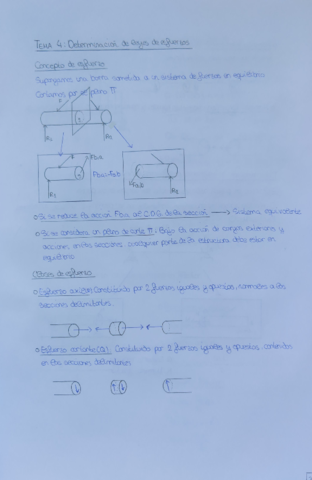 TEMA 4: Determinación de leyes de esfuerzos
Concepto de esfuerzo
Supongamos una barra sometida a un sistema de fuerzas en equilibrio
Cortamos por un plano π
R1
R2
R1
R2
○ Si se reduce la acción FB,A al C.D.G. de la sección → Sistema equivalente
○ Si se considera un plano de corte π: Bajo la acción de cargas exteriores y
acciones en las secciones, cualquier parte de la estructura debe estar en
equilibrio
Tipos de esfuerzo
○ Esfuerzo axil (N): Constituido por 2 fuerzas iguales y opuestas, normales a las
secciones delimitantes.
○ Esfuerzo cortante (Q): Constituido por 2 fuerzas iguales y opuestas contenidas
en las secciones delimitantes